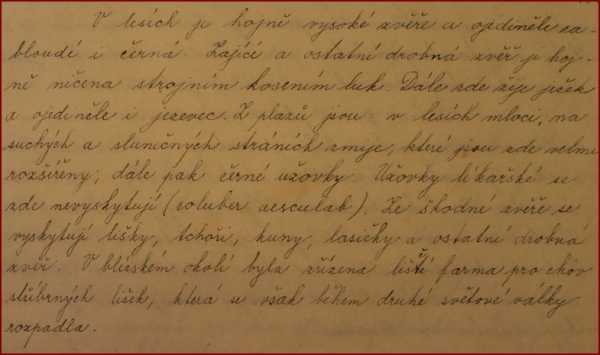 V lesích je hojně vysoké zvěře a ojediněle za-
bloudí i černá. Zajíců a ostatní drobná zvěř je hoj-
ně ničena strojním kosením luk. Dále zde žije ježek
a ojediněle i jezevec. Z plazů jsou v lesích mloci, na
suchých a slunečných stráních zmije, které jsou zde velmi
rozšířeny; dále pak černé užovky. Užovky lékařské se
zde nevyskytují (coluber aesculab). Ze škodné zvěře se
vyskytují lišky, tchoři, kuny, lasičky a ostatní drobná
zvěř. V blízském okolí byla zřízena liščí farma pro chov
stříbrných lišek, která se však během druhé světové války
rozpadla.